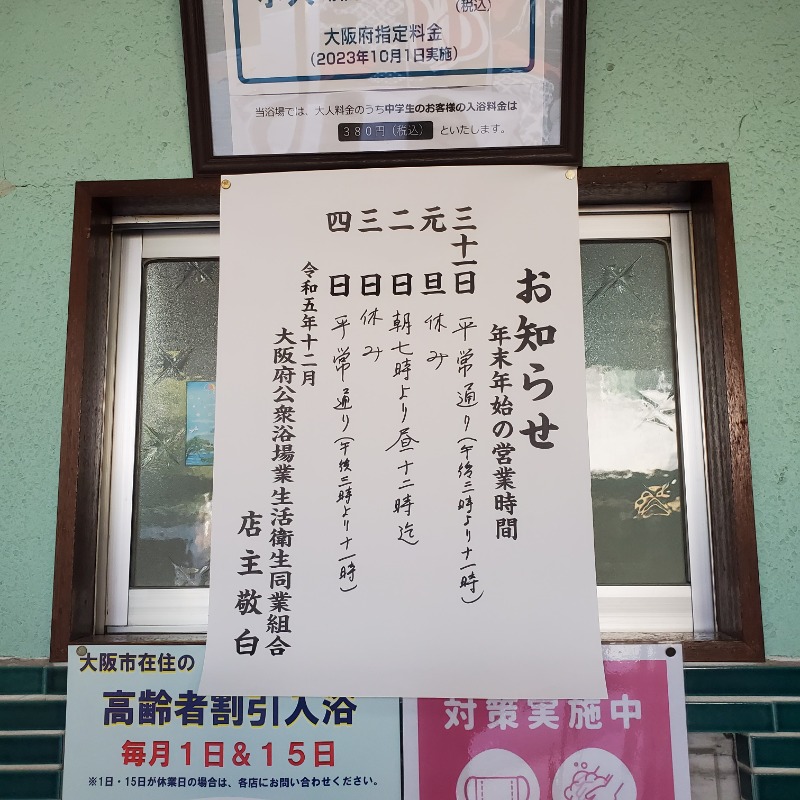 (税込)
大阪府指定料金
(2023年10月1日実施)
当浴場では、大人料金のうち中学生のお客様の入浴料金は
380円(税込) といたします。
お知らせ
年末年始の営業時間
三十一日 平常通り(午後三時より十一時)
元旦 休み
二日 朝七時より昼十二時迄
三日 休み
四日 平常通り(午後三時より十一時)
令和五年十二月
大阪府公衆浴場業生活衛生同業組合
店主敬白
大阪市在住の
高齢者割引入浴
毎月1日&15日
※1日・15日が休業日の場合は、各店にお問い合わせください。
対策実施中